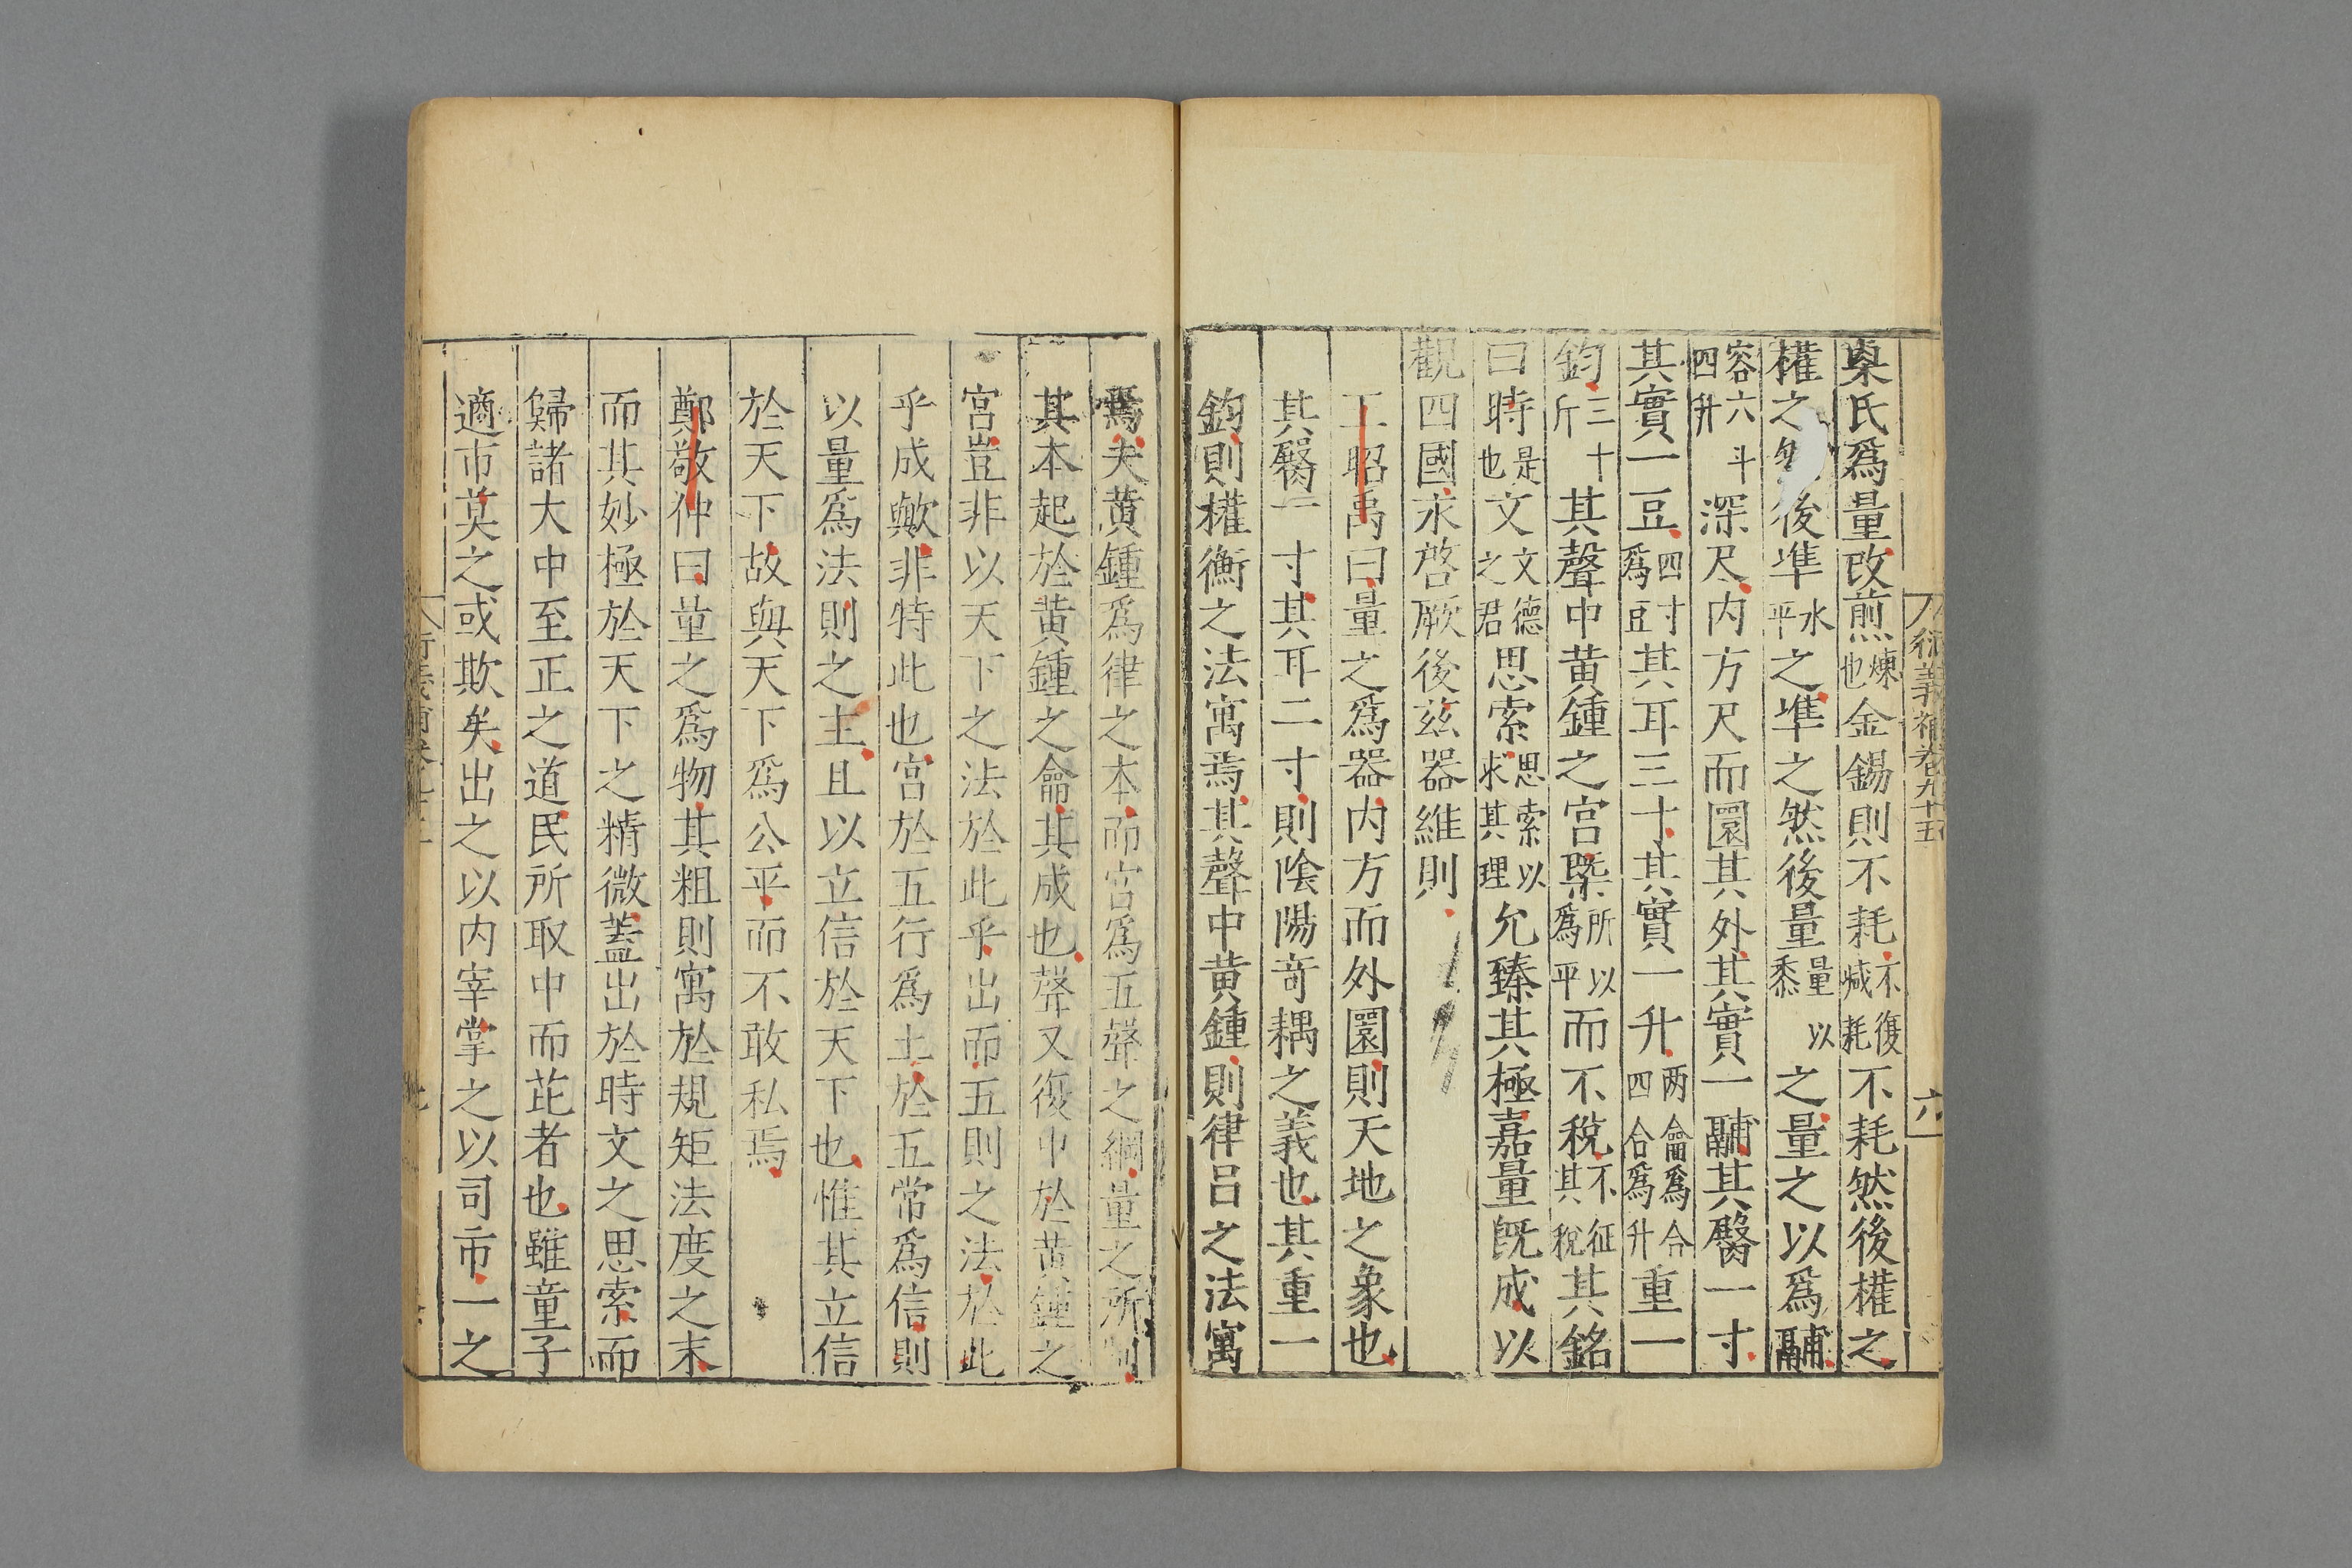 㮚氏爲量改煎煉也金錫則不耗不復減耗不耗然後權之
權之然後準水平之準之然後量量以黍之量之以爲鬴
容六斗四升深尺内方尺而圜其外其實一鬴其臋一寸
其實一豆四寸爲豆其耳三寸其實一升两龠爲合四合爲升重一
鈞三十斤其聲中黄鍾之宫槩所以爲平而不稅不征其稅其銘
曰時是也文文德之君思索思索以求其理允臻其極嘉量旣成以
觀四國永啓厥後兹器維則
王昭禹曰量之爲器内方而外圜則天地之象也
其臋一寸其耳二寸則陰陽竒耦之義也其重一
鈞則權衡之法寓焉其聲中黄鍾則律吕之法寓
焉夫黄鍾爲律之本而宫爲五聲之綱量之所制
其本起於黄鍾之龠其成也聲又復中於黄鍾之
宫豈非以天下之法於此乎出而五則之法於此
乎成歟非特此也宫於五行爲土於五常爲信則
以量爲法則之主且以立信於天下也惟其立信
於天下故與天下爲公平而不敢私焉
鄭敬仲曰量之爲物其粗則寓於規矩法度之末
而其妙極於天下之精微蓋出於時文之思索而
歸諸大中至正之道民所取中而芘者也雖童子
適市莫之或欺矣出之以内宰掌之以司市一之
衍義補卷九十五
六